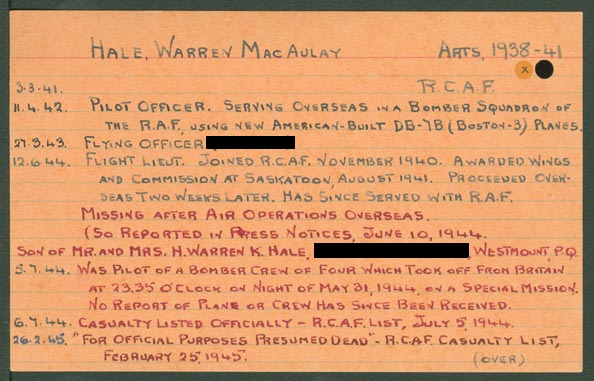 HALE, WARREN MACAULAY ARTS, 1938-41
X
3.3.41. R.C.A.F.
11.4.42. PILOT OFFICER. SERVING OVERSEAS IN A BOMBER SQUADRON OF
THE R.A.F., USING NEW AMERICAN-BUILT DB-7B (BOSTON-3) PLANES.
27.3.43. FLYING OFFICER
12.6.44. FLIGHT LIEUT. JOINED R.C.A.F. NOVEMBER 1940. AWARDED WINGS
AND COMMISSION AT SASKATOON, AUGUST 1941. PROCEEDED OVER-
SEAS TWO WEEKS LATER. HAS SINCE SERVED WITH R.A.F.
MISSING AFTER AIR OPERATIONS OVERSEAS.
(SO REPORTED IN PRESS NOTICES, JUNE 10, 1944.
SON OF MR. AND MRS. H. WARREN K. HALE, WESTMOUNT, P.Q.
5.7.44. WAS PILOT OF A BOMBER CREW OF FOUR WHICH TOOK OFF FROM BRITAIN
AT 23.35 O'CLOCK ON NIGHT OF MAY 31, 1944, ON A SPECIAL MISSION.
NO REPORT OF PLANE OR CREW HAS SINCE BEEN RECEIVED.
6.7.44. CASUALTY LISTED OFFICIALLY - R.C.A.F. LIST, JULY 5, 1944.
26.2.45. "FOR OFFICIAL PURPOSES PRESUMED DEAD" - R.C.A.F. CASUALTY LIST,
FEBRUARY 25, 1945. (OVER)